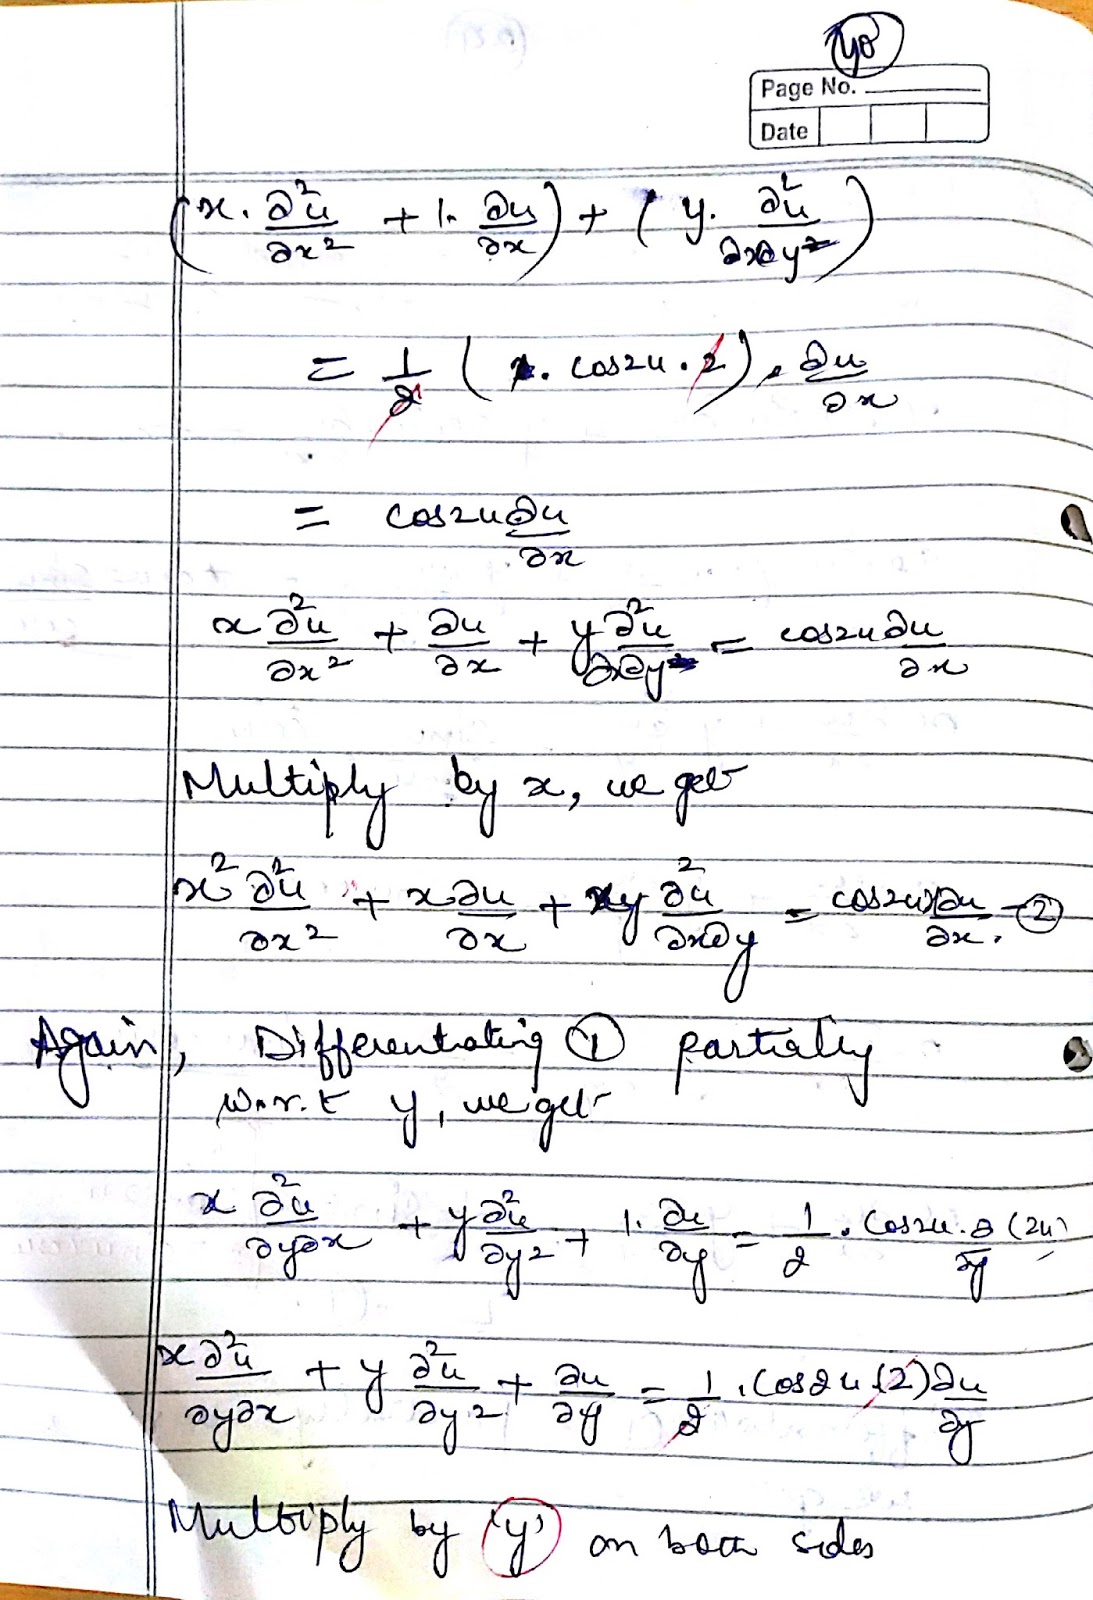 40
Page No.
Date
(x. ∂²u/∂x² + 1. ∂u/∂x) + (y. ∂²u/∂x∂y)
= 1/2 (1. cos2u . 2) . ∂u/∂x
= cos2u ∂u/∂x
x ∂²u/∂x² + ∂u/∂x + y ∂²u/∂x∂y = cos2u ∂u/∂x
Multiply by x, we get
x² ∂²u/∂x² + x ∂u/∂x + xy ∂²u/∂x∂y = cos2u x ∂u/∂x. — ②
Again, Differentiating ① partially
w.r.t y, we get
x ∂²u/∂y∂x + y ∂²u/∂y² + 1. ∂u/∂y = 1/2 . cos2u . ∂/∂y (2u)
x ∂²u/∂y∂x + y ∂²u/∂y² + ∂u/∂y = 1/2 . cos2u (2) ∂u/∂y
Multiply by 'y' on both sides